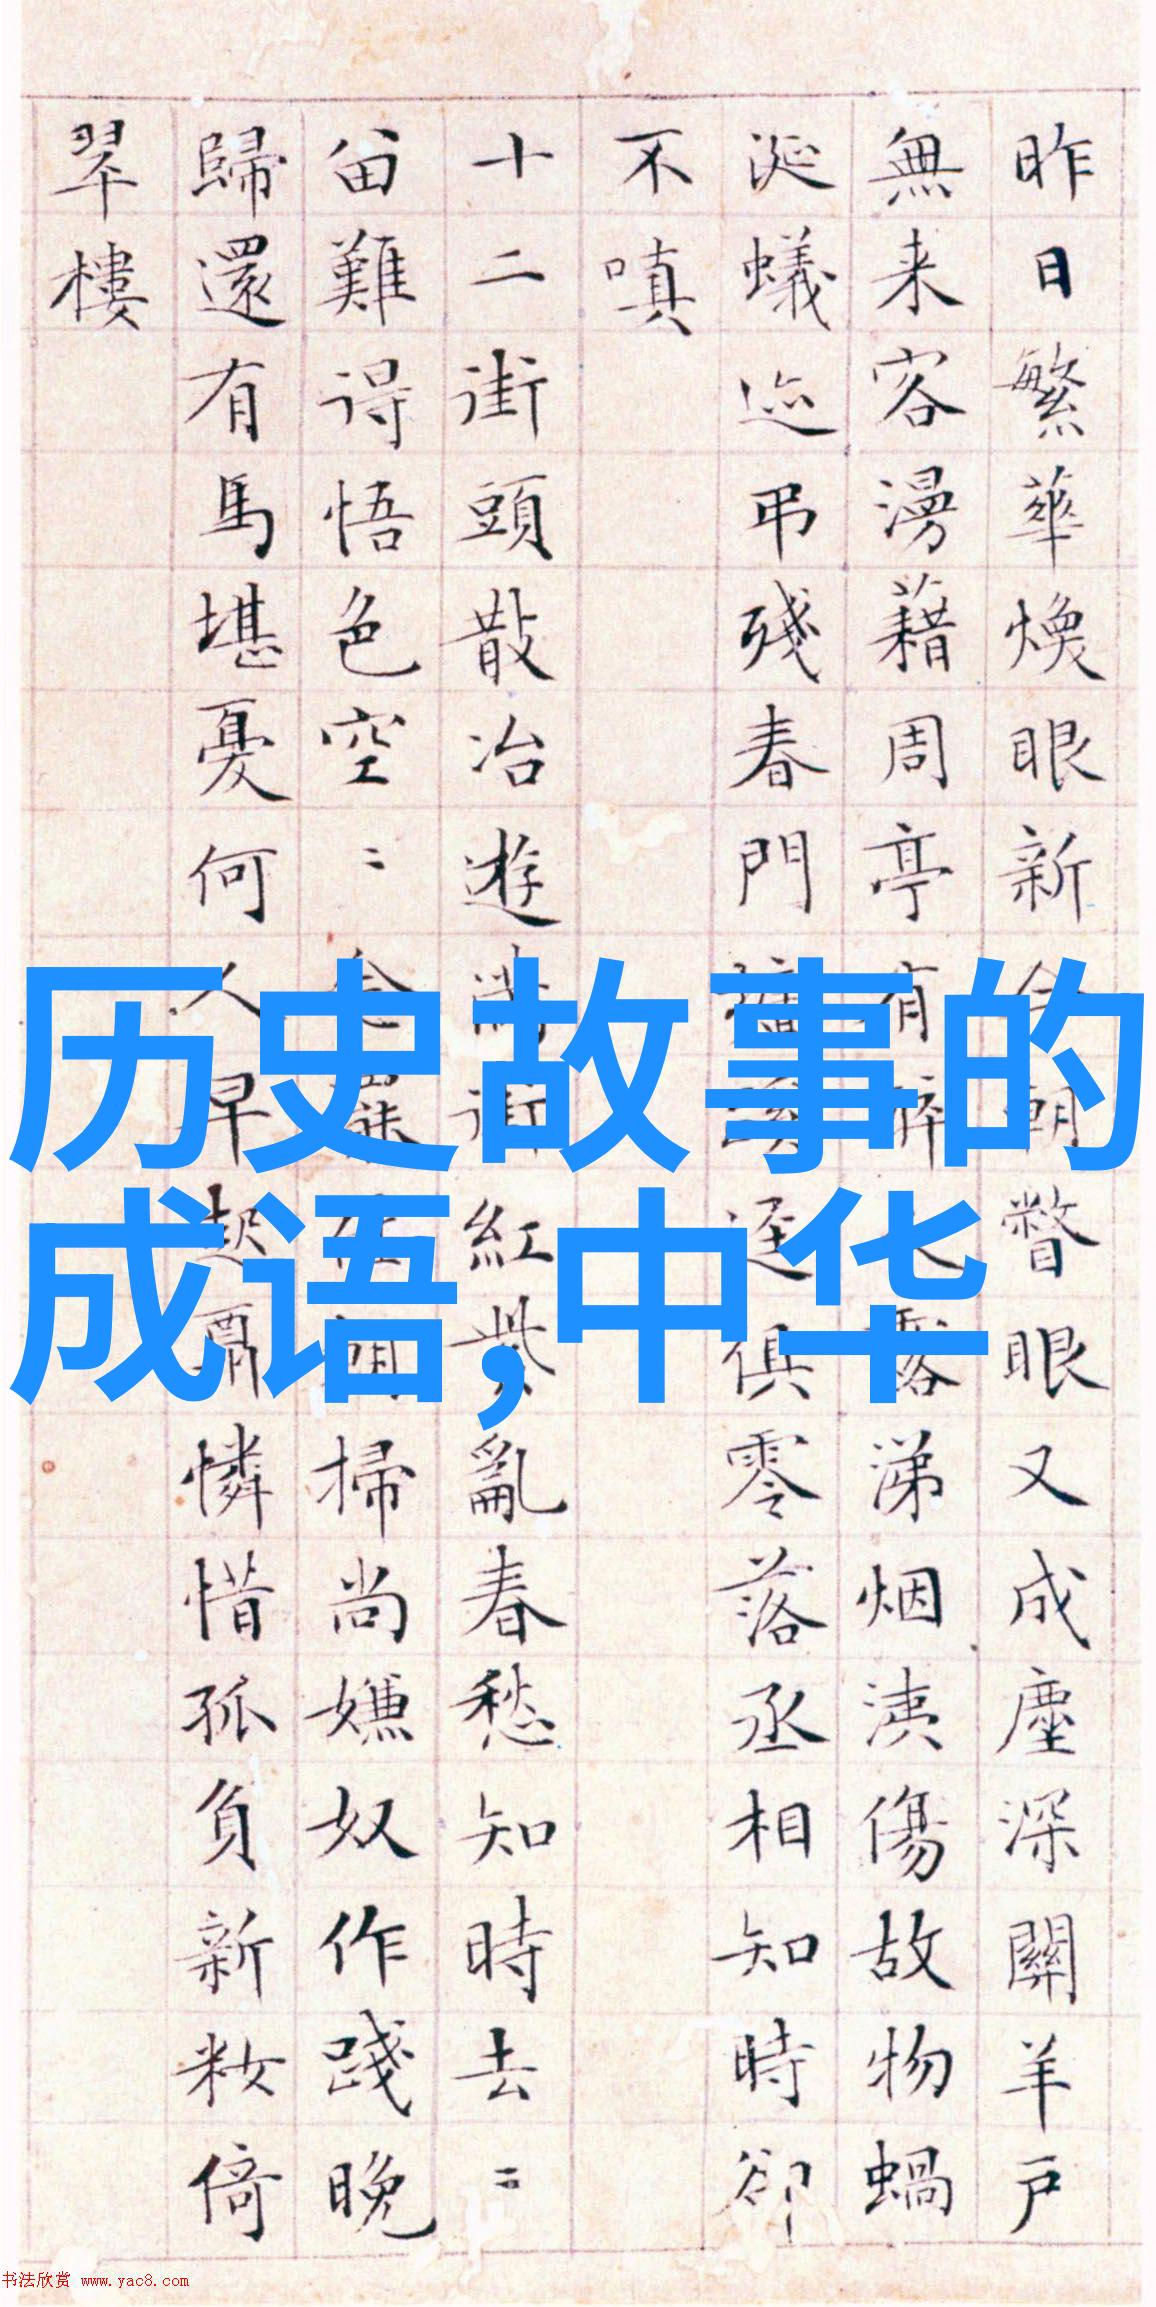 昨日繁華煥眼新今朝瞥眼又成塵深關羊戶
無来客漫藉周亭有涕烟洟傷故物蝸
涎蟻迹弔殘春門逕俱零落丞相知時卻
不嗔
十二街頭散冶遊滿街紅紫亂春愁知時去〻
留難得悟色空〻掃尚嫌奴作踐晚
歸還有馬堪憂何人早起憐惜孤負新妝倚
翠樓
历史故事的
成语,中华
书法欣赏 www.yac8.com